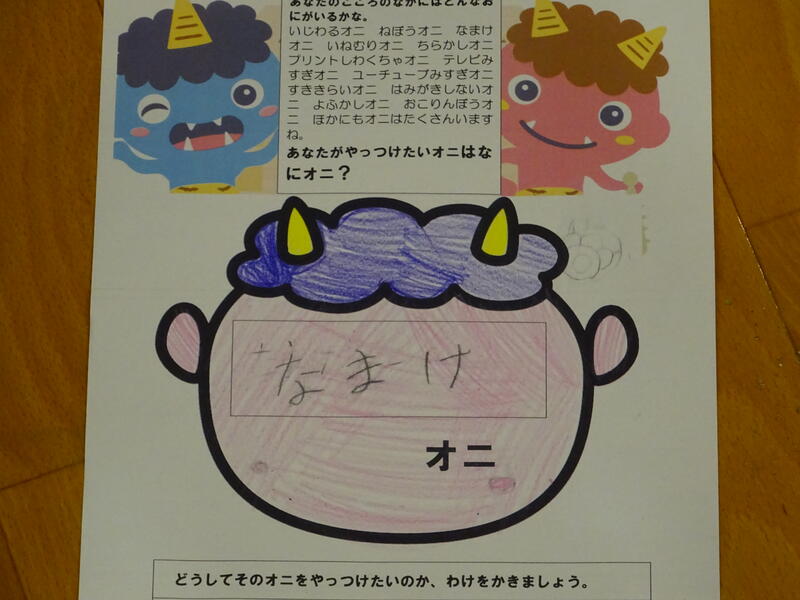 あなたのこころのなかにはどんなお
にがいるかな。
いじわるオニ　ねぼうオニ　なまけ
オニ　いねむりオニ　ちらかしオニ
プリントしわくちゃオニ　テレビみ
すぎオニ　ユーチューブみすぎオニ
すききらいオニ　はみがきしないオ
ニ　よふかしオニ　おこりんぼうオ
ニ　ほかにもオニはたくさんいます
ね。
あなたがやっつけたいオニはな
にオニ？
なまけ
オニ
どうしてそのオニをやっつけたいのか、わけをかきましょう。